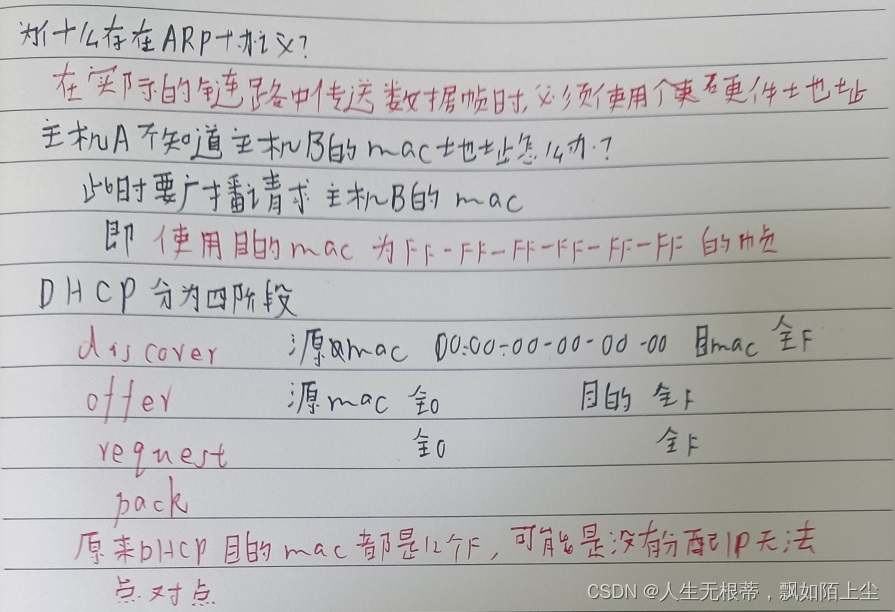 为什么存在ARP协议?
在实际的链路中传送数据帧时,必须使用个硬件地址
主机A不知道主机B的mac地址怎么办?
此时要广播请求主机B的mac
即 使用目的mac 为FF-FF-FF-FF-FF-FF 的帧
DHCP分为四阶段
discover 源mac 00:00-00-00-00-00 目mac 全F
offer 源mac 全0 目的 全F
request 全0 全F
pack
原来DHCP目的mac都是12个F,可能是没有分配IP无法
点对点
CSDN @人生无根蒂,飘如陌上尘